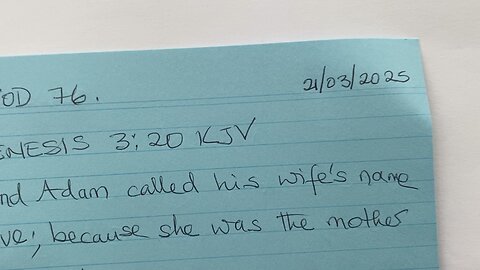 OD 76.
21/03/2025
ENESIS 3:20 KJV
nd Adam called his wife's name
ve; because she was the mother